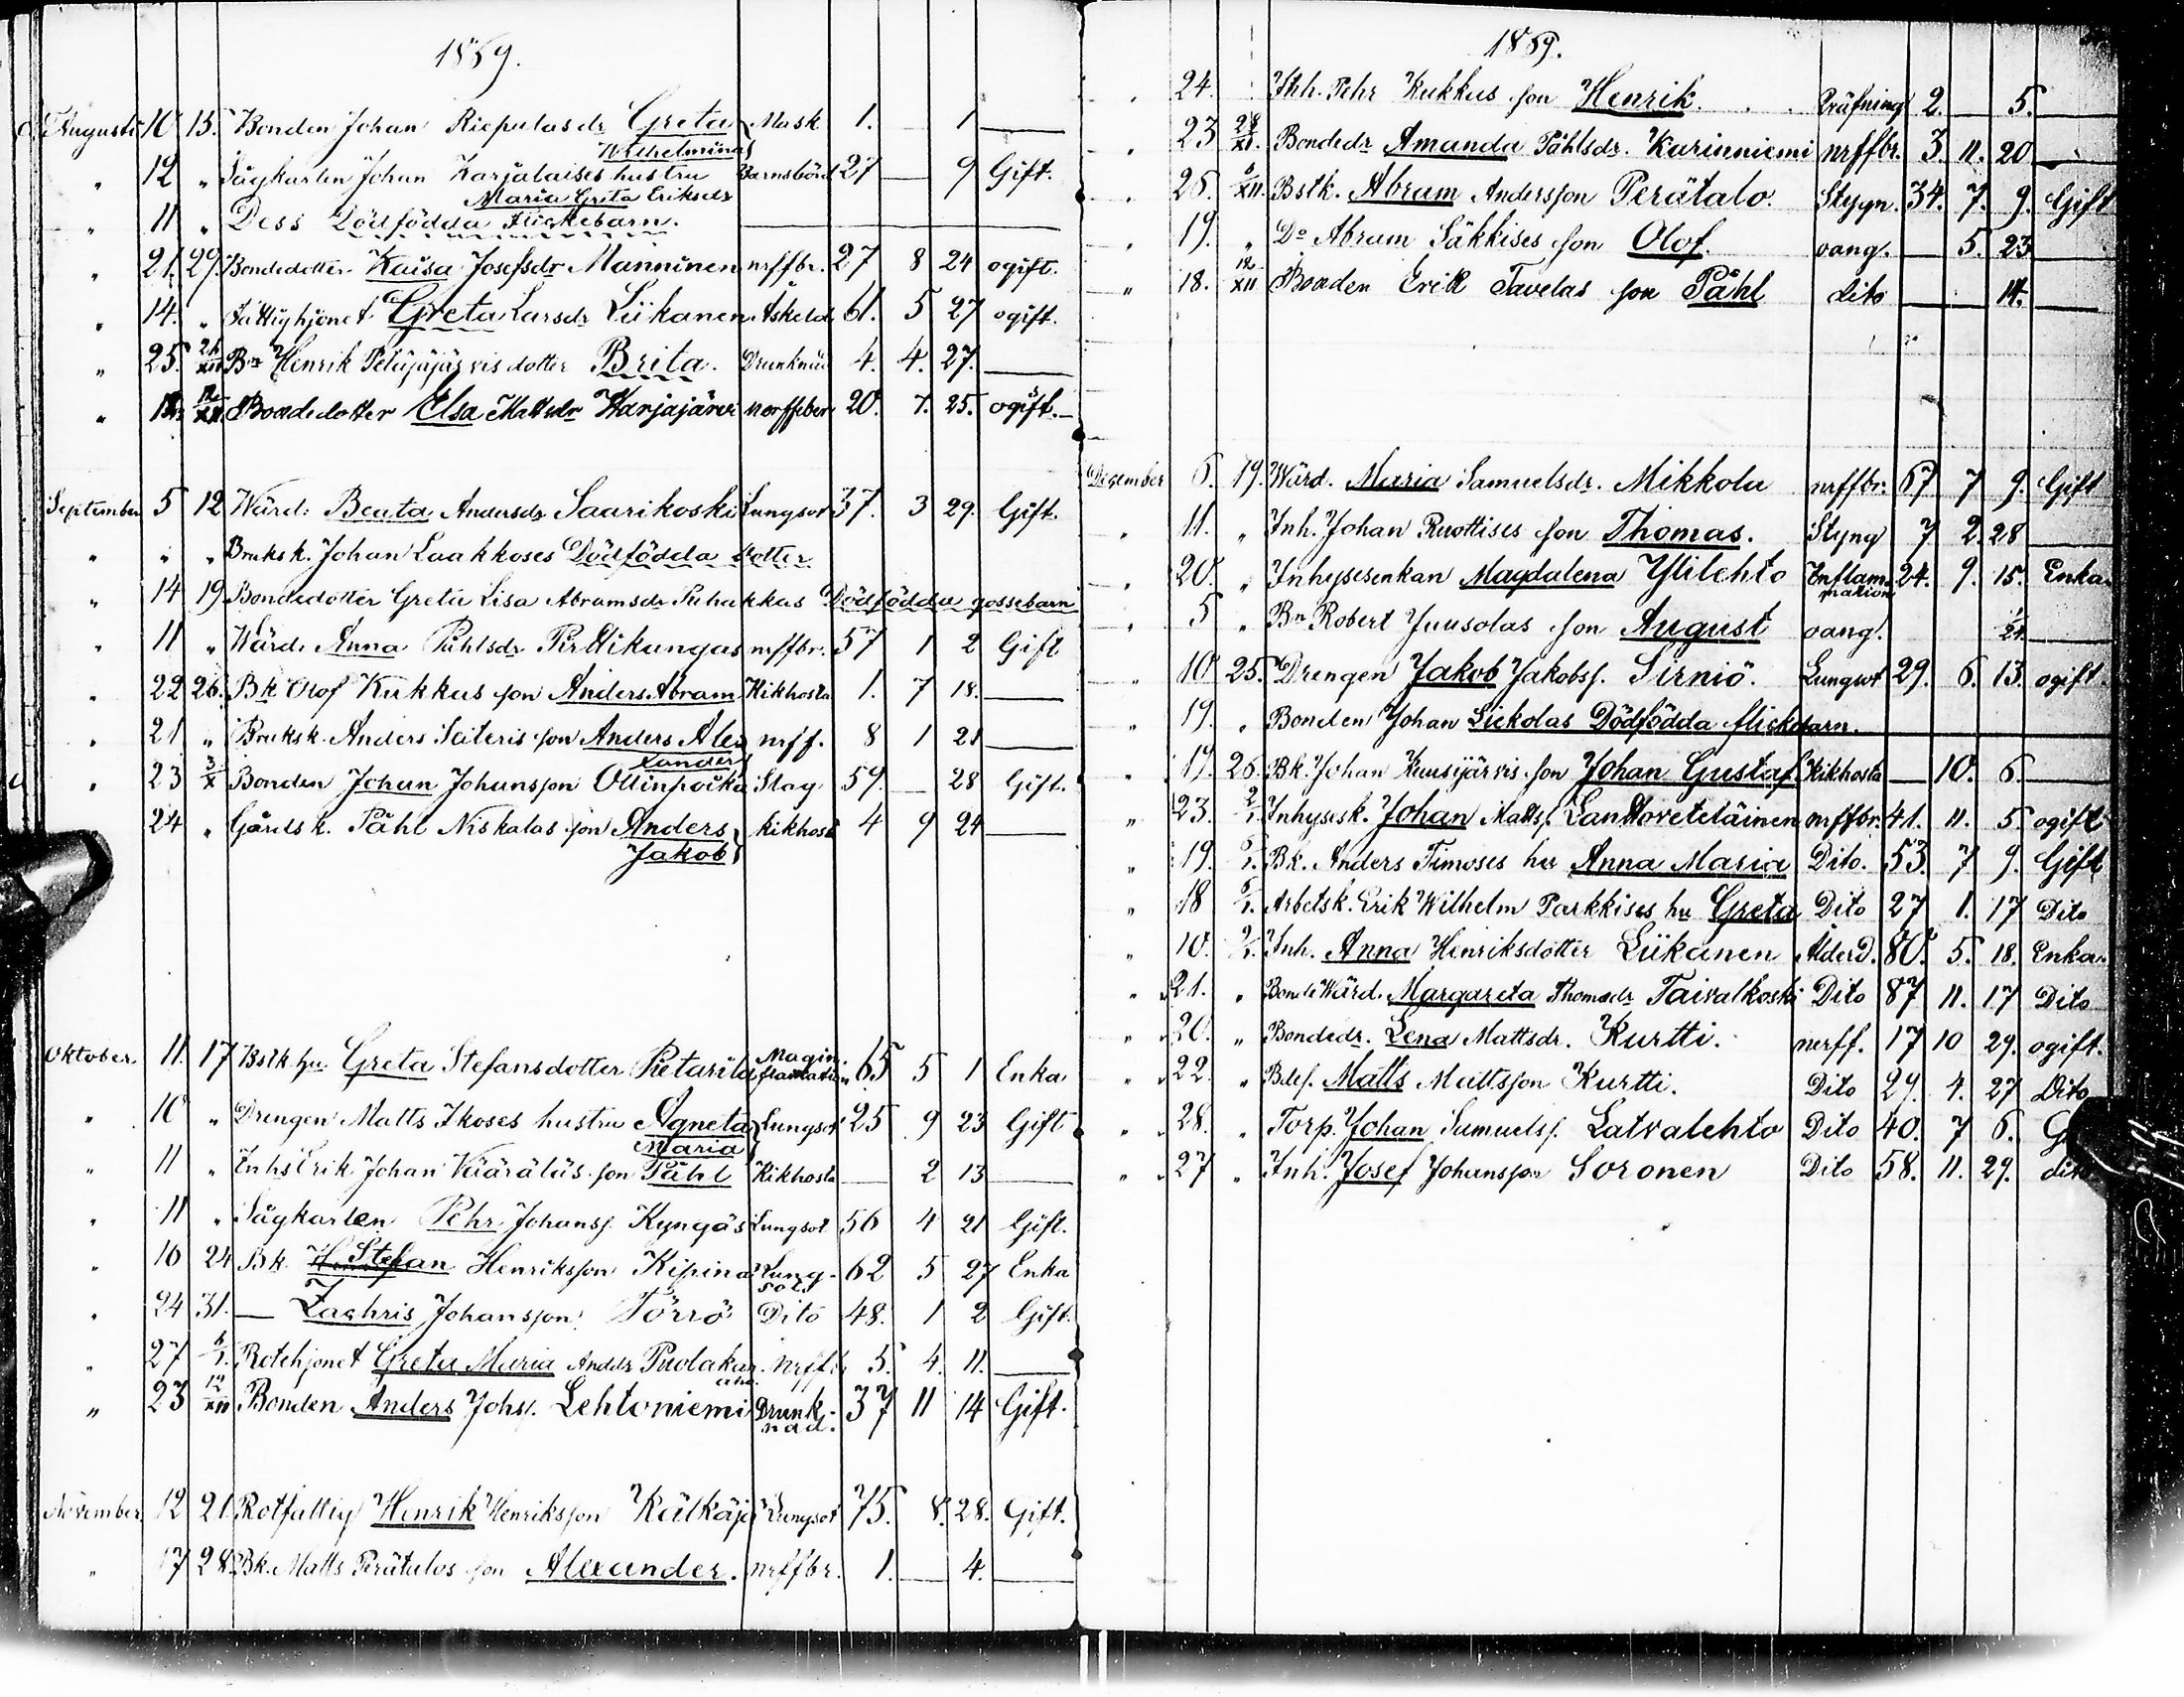 1869.
Augusti 10 15. Bonden Johan Riepulas dr Greta Mask 1. 1
Wilhelmina
" 12 " Sågkarlen Johan Karjalaises hustru Barnsbörd 27 — 9 Gift.
Maria Greta Eriksdr
" 11 " Dess Dödfödda Flickebarn.
" 21. 29. Bondedotter Kaisa Josefsdr Manninen nrffbr. 27 8 24 ogift.
" 14. " Fattighjonet Greta Larsdr Liikanen 61. 5 27 ogift.
" 25. Bn Henrik dotter Brita. Drunknad 4. 4. 27.
" 12/XII Bondedotter Elsa Mattsdr Karjajärvi nerffeber 20. 7. 25. ogift.
September 5 12 Wärd. Beata Andersdr Saarikoski Lungsot 37. 3 29. Gift.
" " " Bruksk. Johan Laakkoses Dödfödda dotter
" 14 19 Bondedotter Greta Lisa Abramsdr Puhakkas Dödfödda gossebarn
" 11 " Wärd. Anna Påhlsdr Pirttikangas nrffbr. 57 1 2 Gift
" 22 26. Bk Olof Kukkus son Anders Abram Kikhosta 1. 7 18.
" 21 " Bruksk. Anders son Anders Alex nrff. 8 1 21
xander
" 23 3/X Bonden Johan Johansson Ollinpoika Slag 59. — 28 Gift.
24 " Gårdsk. Påhl Niskalas son Anders Kikhosta 4 9 24
Jakob
Oktober. 11. 17 Bstk hu Greta Stefansdotter Pietarila Magin- 65 5 1 Enka
flamation
" 10 " Drengen Matts Ikoses hustru Agneta Lungsot 25 9 23 Gift
Maria
" 11 " Inhs Erik Johan Vääräläs son Påhl Kikhosta — 2 13
" 11 " Sågkarlen Pehr Johanss. Kyngäs Lungsot 56 4 21 Gift.
" 16 24 Bk. Stefan Henriksson Kipina Lung- 62 5 27 Enka
sot
" 24 31. — Zachris Johansson Törrö Dito 48. 1 2 Gift.
" 27 Rotehjonet Greta Maria Andr Puolakan- nrffb 5. 4. 11.
aho
" 23 12/XII Bonden Anders Johss. Lehtoniemi Drunk- 37 11 14 Gift.
nad.
November 12 21. Rotfattig Henrik Henriksson Kälkäjä Lungsot 75. 8. 28. Gift.
" 17 28. Bk. Matts Perätalos son Alexander. nrffbr. 1. — 4.
1869.
" 24. Inh. Pehr Kukkus son Henrik. Qväfning 2. 5.
" 23 28/XI. Bondedr Amanda Påhlsdr. Karinniemi nrffbr. 3. 11. 20
" 25. 5/XII. Bstk. Abram Andersson Perätalo. Styng. 34. 7. 9. Gift
" 19. " Do Abram Säkkises son Olof. oang. — 5. 23
" 18. 12/XII Bonden Erik Tavelas son Påhl dito — 14.
December 6. 19. Wärd. Maria Samuelsdr. Mikkola nrffbr. 67 7 9. Gift
" 11. " Inh. Johan Ruottises son Thomas. Styng 7. 2. 28
" 20. " Inhysesenkan Magdalena Ylilehto Inflam- 24. 9. 15. Enka
mation
" 5 " Bn Robert Juusolas son August oang. 1/24
" 10. 25. Drengen Jakob Jakobss. Sirniö. Lungsot 29. 6. 13. ogift.
" 19. " Bonden Johan Liekolas Dödfödda flickebarn.
" 17. 26. Bk. Johan Kuusijärvis son Johan Gustaf Kikhosta — 10. 6.
" 23. 2/1. Inhysesk. Johan Mattss. nrffbr. 41. 11. 5. ogift
" 19. 6/1. Bk. Anders Timoses hu Anna Maria Dito. 53. 7 9. Gift
" 18 6/1. Arbetsk. Erik Wilhelm Parkkises hu Greta Dito 27 1. 17 Dito
" 10. 9/1. Inh. Anna Henriksdotter Liikanen Ålderd. 80. 5. 18. Enka.
" 21. " Bonde Wärd. Margareta Thomadr Taivalkoski Dito 87 11. 17 Dito
" 20. " Bondedr. Lena Mattsdr. Kurtti. nerff. 17 10 29. ogift.
" 22. " Bdes. Matts Mattsson Kurtti. Dito 29. 4. 27 Dito
" 28. " Torp. Johan Samuelss. Latvalehto Dito 40. 7 6. G
" 27 " Inh. Josef Johansson Soronen Dito 58. 11. 29. dito